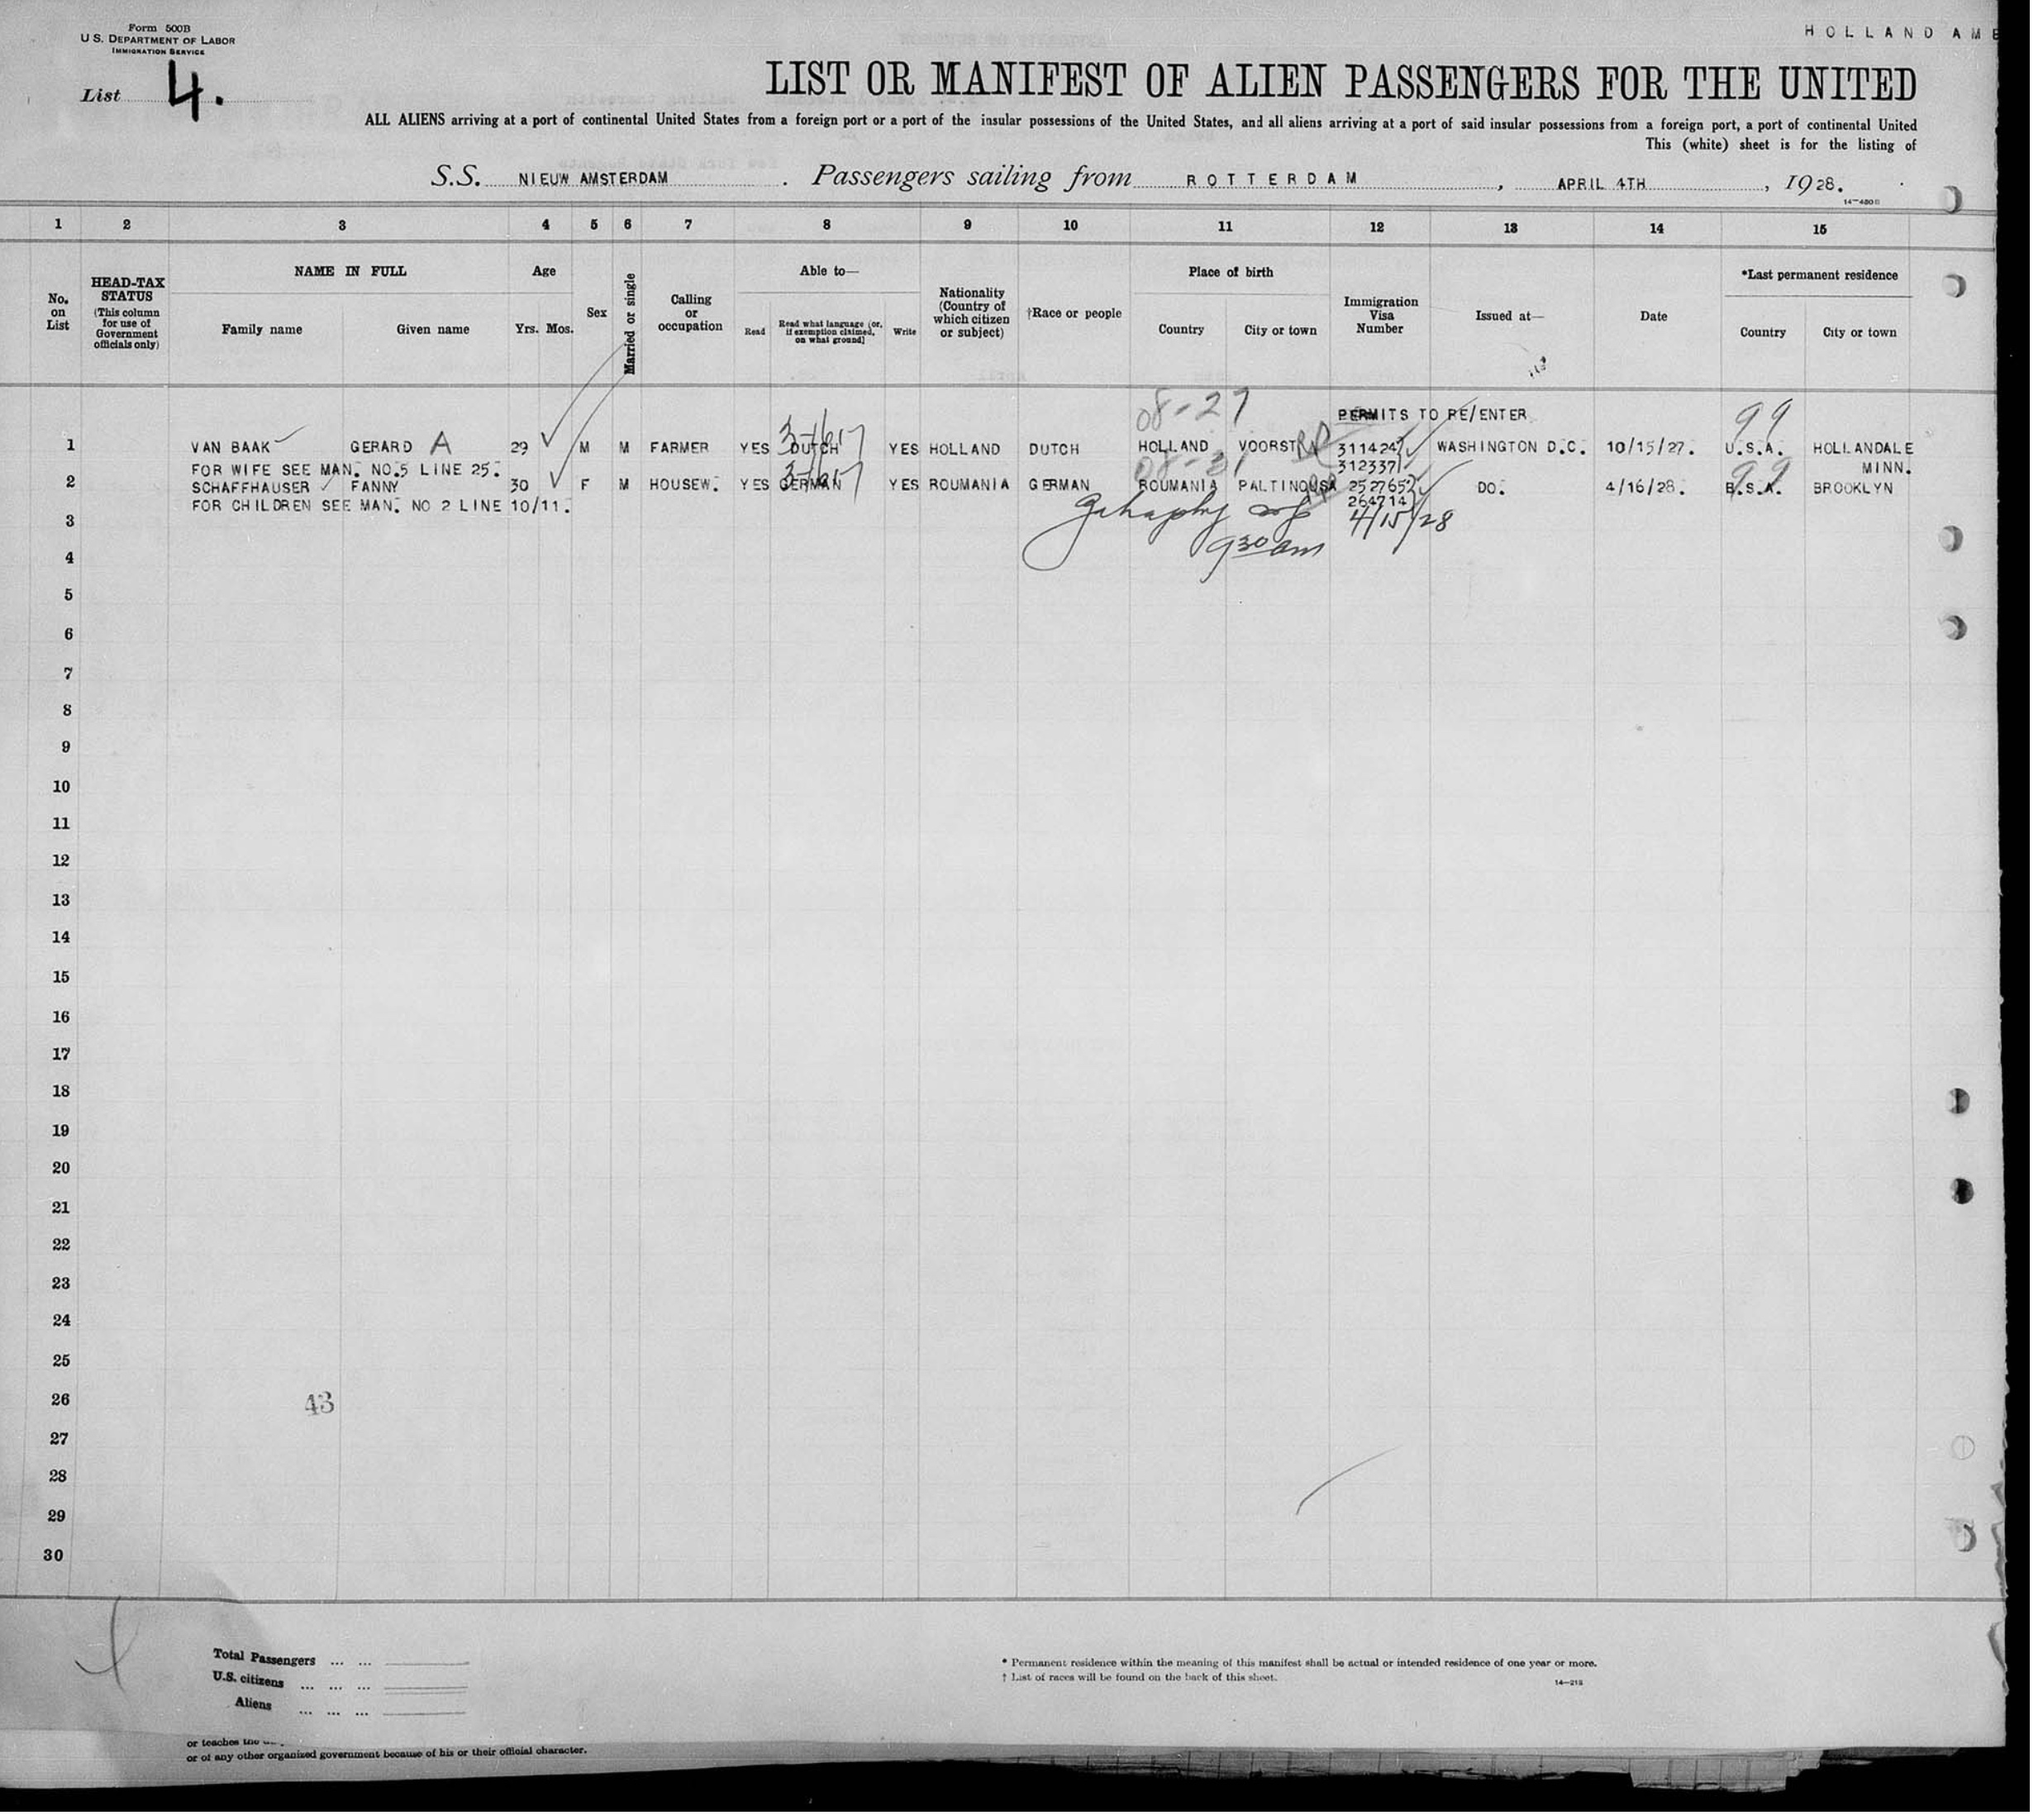 Form 500B
U S. DEPARTMENT OF LABOR
IMMIGRATION SERVICE
HOLLAND AME
List 4.
LIST OR MANIFEST OF ALIEN PASSENGERS FOR THE UNITED
ALL ALIENS arriving at a port of continental United States from a foreign port or a port of the insular possessions of the United States, and all aliens arriving at a port of said insular possessions from a foreign port, a port of continental United
This (white) sheet is for the listing of
S.S. NIEUW AMSTERDAM. Passengers sailing from ROTTERDAM, APRIL 4TH, 1928.
14—480 B
1 2 3 4 5 6 7 8 9 10 11 12 13 14 15
No. on List
HEAD-TAX STATUS (This column for use of Government officials only)
NAME IN FULL
Family name Given name
Age
Yrs. Mos.
Sex
Married or single
Calling or occupation
Able to—
Read Read what language (or, if exemption claimed, on what ground) Write
Nationality (Country of which citizen or subject)
†Race or people
Place of birth
Country City or town
Immigration Visa Number
Issued at—
Date
*Last permanent residence
Country City or town
08-27 PERMITS TO RE/ENTER 99
1 VAN BAAK GERARD A 29 M M FARMER YES DUTCH YES HOLLAND DUTCH HOLLAND VOORST 311424 WASHINGTON D.C. 10/15/27. U.S.A. HOLLANDALE
FOR WIFE SEE MAN. NO.5 LINE 25. 312337 99 MINN.
2 SCHAFFHAUSER FANNY 30 F M HOUSEW. YES GERMAN YES ROUMANIA GERMAN ROUMANIA PALTINOUSA 252765 DO. 4/16/28. B.S.A. BROOKLYN
FOR CHILDREN SEE MAN. NO 2 LINE 10/11. 264714
3 4/15/28
4 9 30 am
5
6
7
8
9
10
11
12
13
14
15
16
17
18
19
20
21
22
23
24
25
26 43
27
28
29
30
Total Passengers ... ...
U.S. citizens ... ... ...
Aliens ... ... ...
* Permanent residence within the meaning of this manifest shall be actual or intended residence of one year or more.
† List of races will be found on the back of this sheet.
14—218
or teaches the
or of any other organized government because of his or their official character.